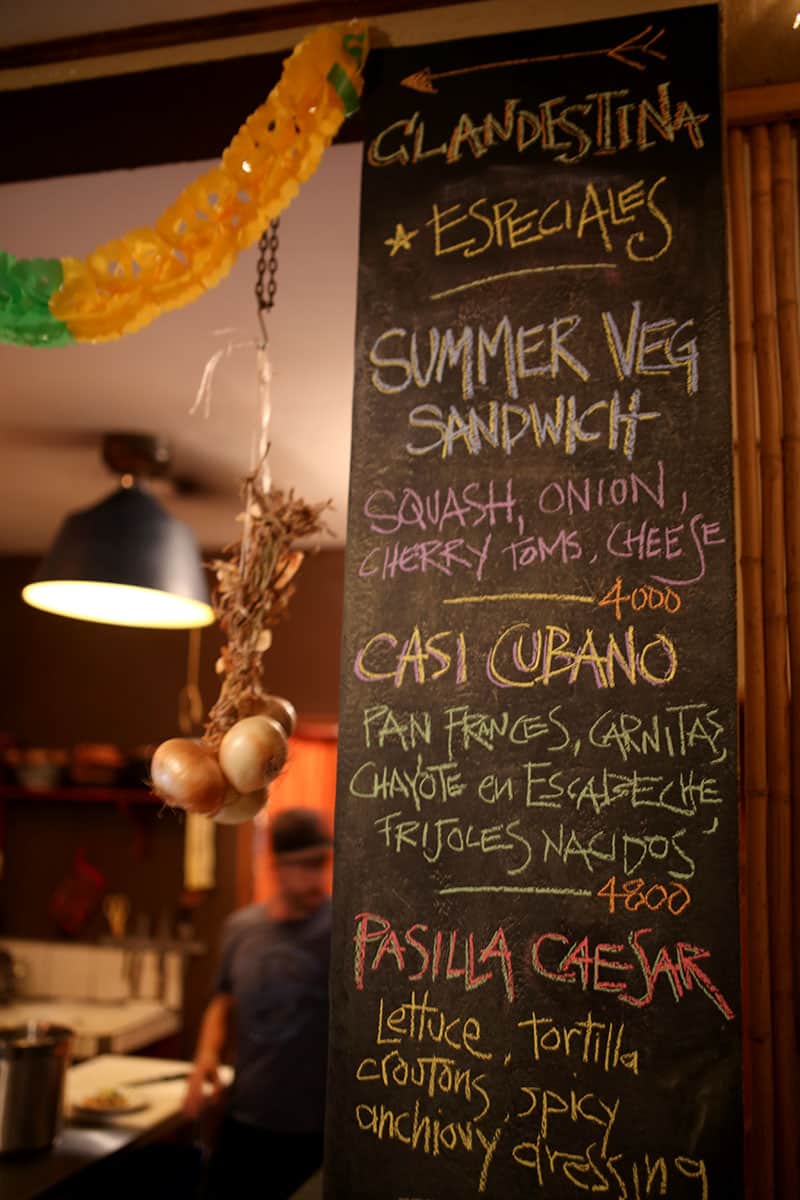 CLANDESTINA
ESPECIALES
SUMMER VEG
SANDWICH
SQUASH, ONION,
CHERRY TOMS, CHEESE
4000
CASI CUBANO
PAN FRANCES, CARNITAS,
CHAYOTE en ESCABECHE,
FRIJOLES NACIDOS
4800
PASILLA CAESAR
Lettuce, tortilla
croutons, spicy
anchiovy dressing